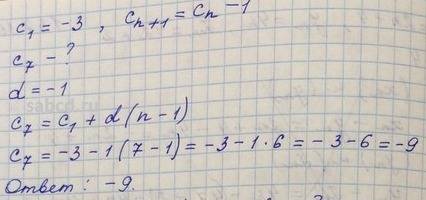 c₁ = -3 , cₙ₊₁ = cₙ -1
c₇ - ?
d = -1
c₇ = c₁ + d(n-1)
c₇ = -3 -1(7-1) = -3 -1·6 = -3 -6 = -9
Ответ: -9.